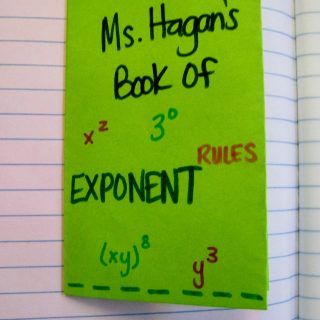 Ms. Hagan's
Book Of
x² 3⁰
RULES
EXPONENT
(xy)⁸
y³